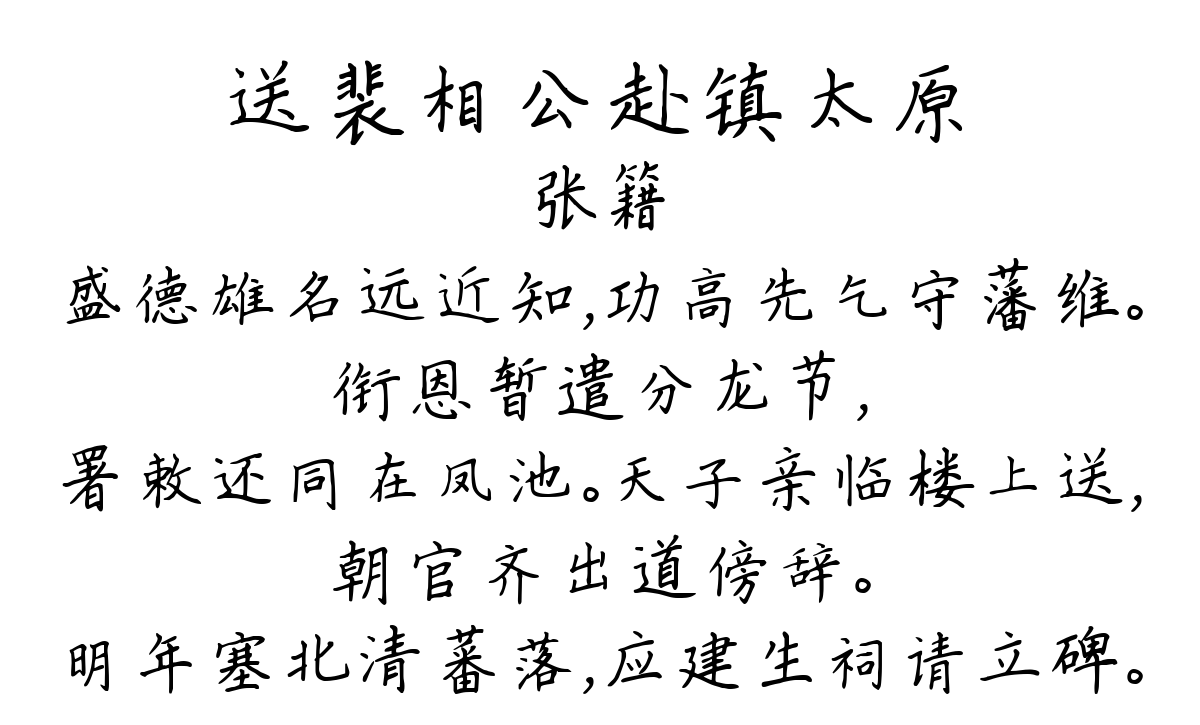 送裴相公赴镇太原
张籍
盛德雄名远近知,功高先乞守藩维。
衔恩暂遣分龙节,
署敕还同在凤池。天子亲临楼上送,
朝官齐出道傍辞。
明年塞北清蕃落,应建生祠请立碑。